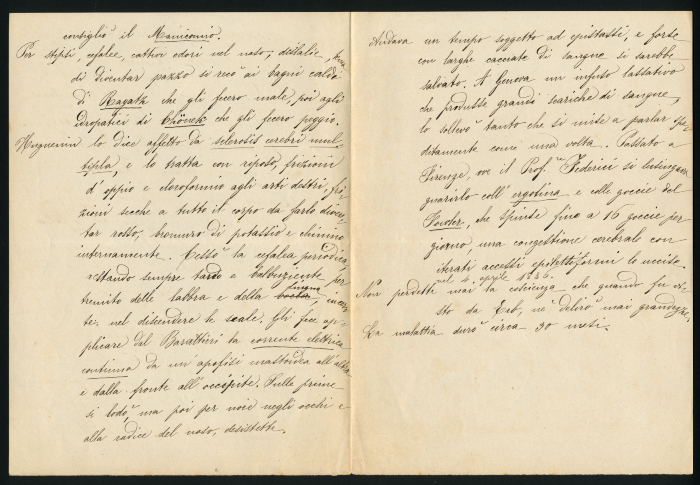 consigliò il Manicomio.
Per stipsi, cefalee, cattivi odori nel naso,
di diventar pazzo si recò ai bagni caldi
di Ragath che gli fecero male, poi agli
idropatici di Chönek che gli fecero peggio.
Huguenin lo dice affetto da sclerosis cerebri mul-
tipla, e lo tratta con riposo, frizioni
d'oppio e cloroformio agli arti destri, fri-
zioni secche a tutto il corpo da farlo diven-
tar rosso, bromuro di potassio e chinino
internamente. Cessò la cefalea periodica,
restando sempre tardo e balbuziente, per
tremito delle labbra e della lingua,
nel discendere le scale. Gli fece ap-
plicare dal Basattieri la corrente elettrica
continua da un'apofisi mastoidea all'altra
e dalla fronte all'occipite. Sulle prime
si lodò, ma poi per noie negli occhi e
alla radice del naso, desistette.
Andava un tempo soggetto ad epistassi, e forse
con larghe cacciate di sangue si sarebbe
salvato. A Genova un infuso lassativo
che produsse grandi scariche di sangue,
lo sollevò tanto che si mise a parlar spe-
ditamente come una volta. Passato a
Firenze, ove il Prof. Federici si lusingava
guarirlo coll'ergotina e colle goccie del
Fowler, che spinte fino a 16 goccie per
giorno, una congestione cerebrale con
iterati accessi epilettiformi lo uccise.
nel dì aprile 1886.
Non perdette mai la coscienza che quando fu vi-
sto da Erb, nè delirò mai grandezze.
La malattia durò circa 30 mesi.